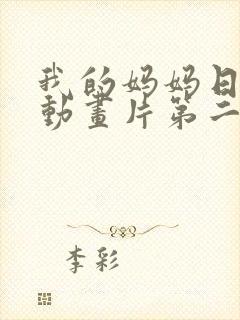 我的妈妈日
動畫片第二
李彩